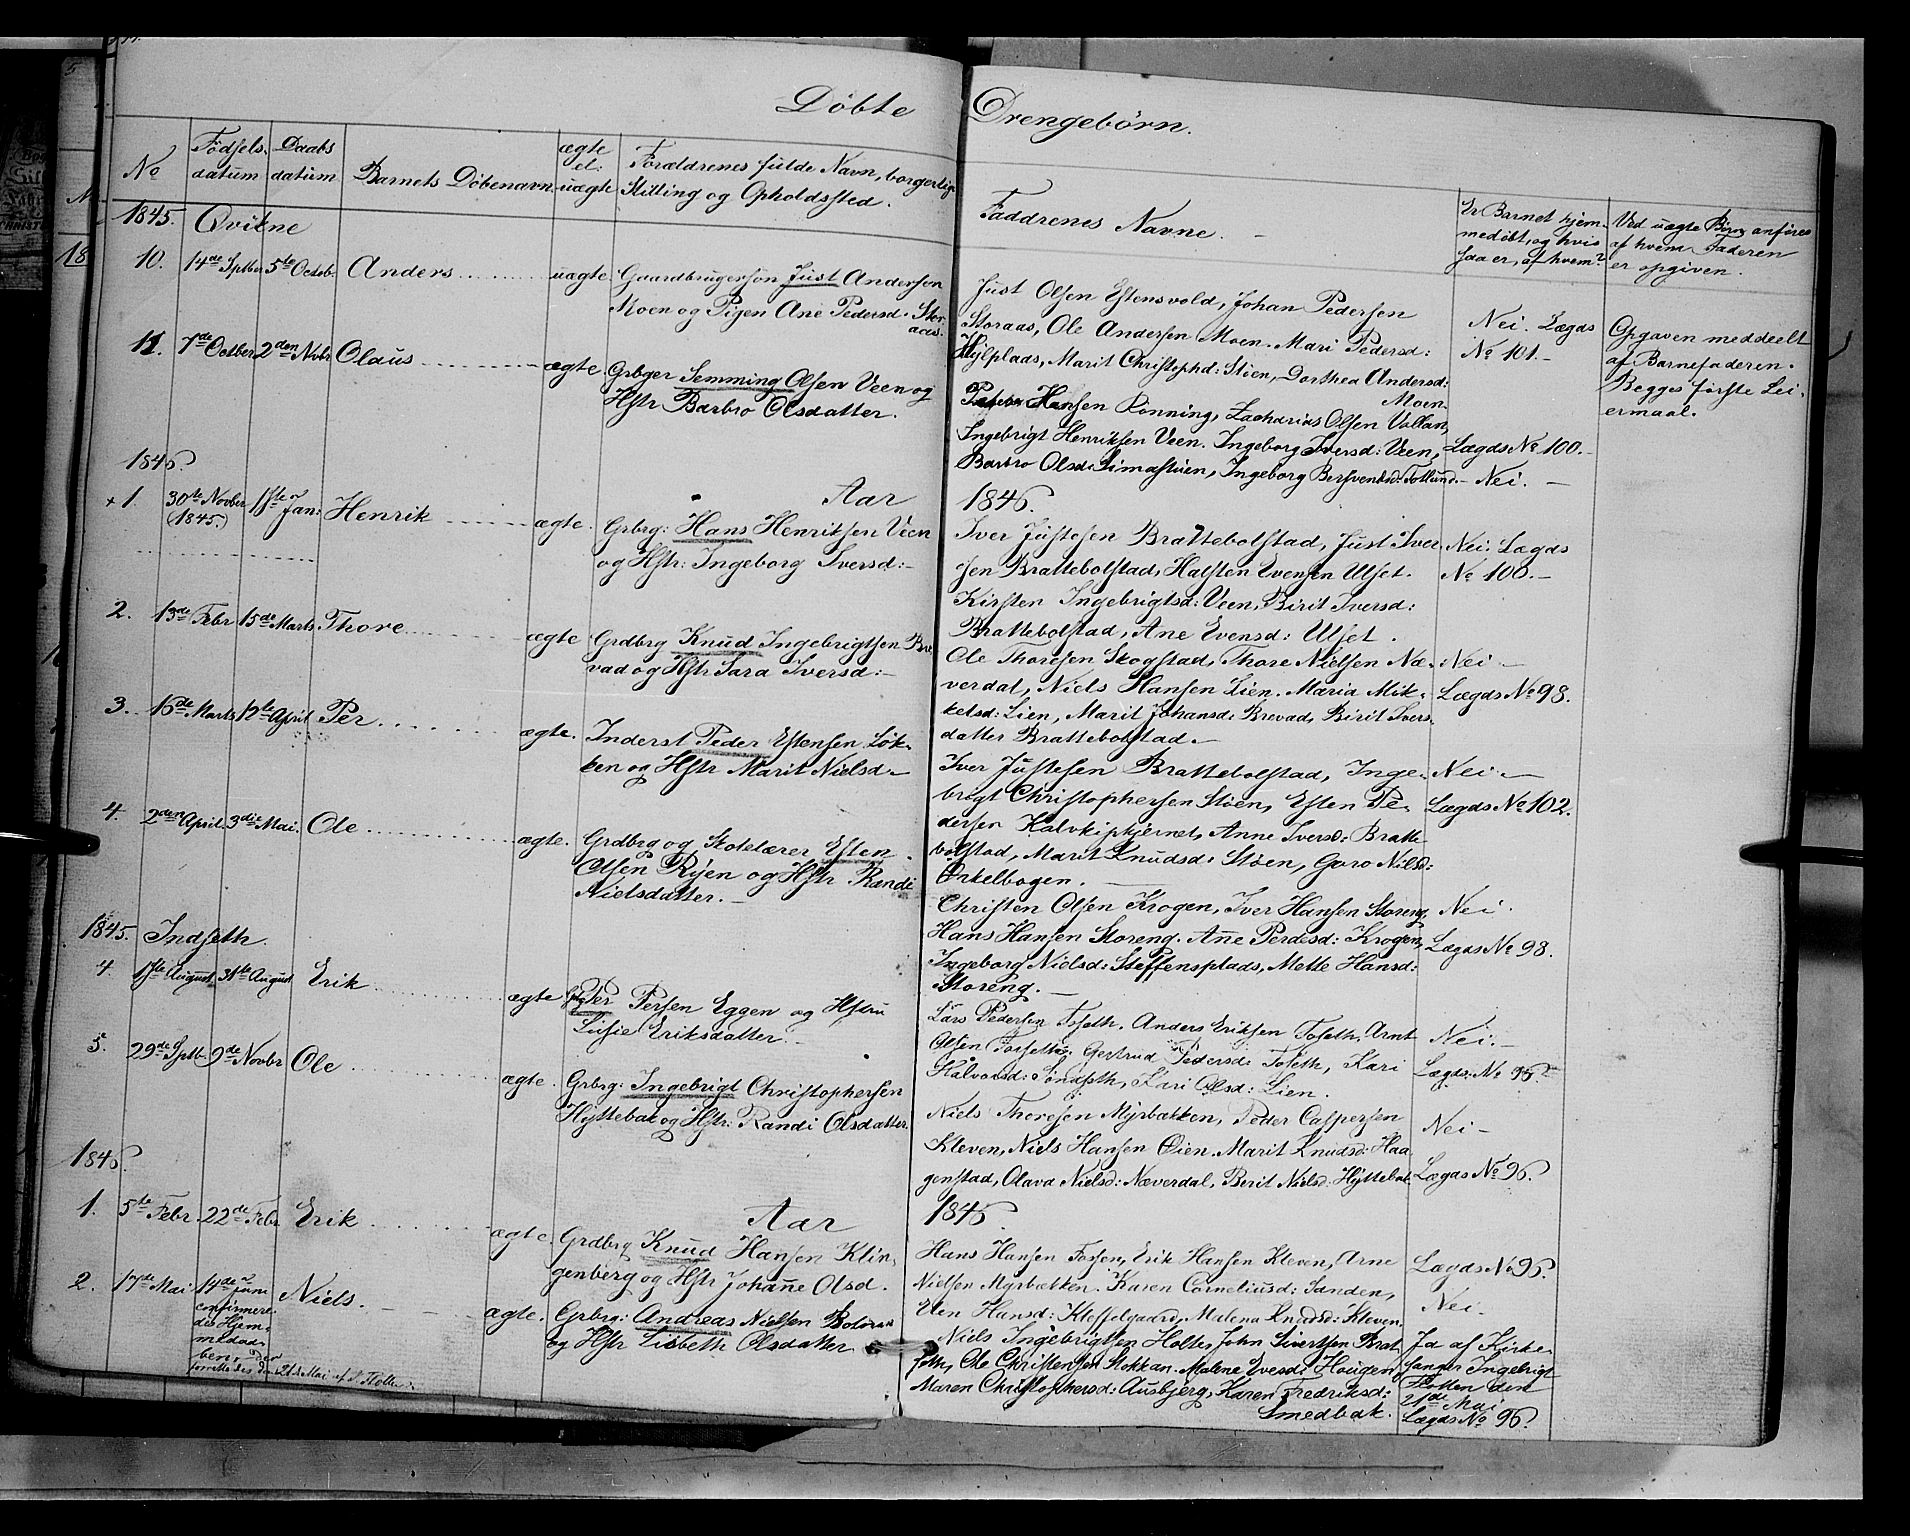 Döbte Drengebörn.
No
Födsels datum
Daabs datum
Barnets Döbenavn
ægte el: uægte
Forældrenes fulde Navn, borgerlig Stilling og Opholdssted.
Faddrenes Navne.
Er Barnet hjem-
medöbt, og hvis
saa er, af hvem?
Ved uægte Börn anföres
af hvem Faderen
er opgiven.
1845. Qvikne
10. 14de Septber 5te Octob. Anders uægte Gaardbrugersön Just Andersen
Moen og Pigen Ane Pedersd. Stor-
aas.
Just Olsen Estensvold, Johan Pedersen
Storaas, Ole Andersen Moen. Mari Pedersd:
Hylplads, Marit Christophd: Stöen, Dorthea Andersd:
Moen.
Nei. Lægds
No 101.
Opgaven meddeelt
af Barnefaderen.
Begges förste Lei-
ermaal.
11. 7de Octber 2den Novbr Olaus ægte. Grbger Semming Olsen Veen og
Hstr Barbro Olsdatter.
Hansen Rönning, Zacharias Olsen Vollan,
Ingebrigt Henriksen Veen. Ingeborg Iversd: Veen,
Barbro Olsd: Ingeborg
Lægds No 100.
Nei.
1846
Aar 1846.
+1. 30te Novber (1845.) 11te Jan: Henrik ægte. Grbrg: Hans Henriksen Veen
og Hstr: Ingeborg Iversd:
Iver Justesen Brattebolstad, Just Iver-
sen Brattebolstad, Halsten Evensen Ulset.
Kirsten Ingebrigtsd: Veen, Birit Iversd:
Brattebolstad, Ane Evensd: Ulset.
Nei. Lægds
No 100.
2. 13de Febr 15de Marts Thore ægte Grdbrg Knud Ingebrigtsen Bre-
vad og Hstr Sara Iversd:
Ole Thoresen Skogstad, Thore Nielsen Næ-
verdal, Niels Hansen Lien. Maria Mik-
kelsd: Lien, Marit Johansd: Brevad, Birit Ivers-
datter Brattebolstad.
Nei
Lægds No 98.
3. 16de Marts 12te April Per ægte. Inderst Peder Estensen Lök-
ken og Hstr Marit Nielsd.
Iver Justesen Brattebolstad, Inge-
brigt Christophersen Stöen, Esten Pe-
dersen Kalvkipkjernet, Anne Iversd: Bratte-
bolstad, Marit Knudsd: Stöen, Goro Nilsd:
Orkelbogen.
Nei
Lægds No 102.
4. 2den April 3die Mai. Ole ægte. Grdbrg og Skolelærer Esten
Olsen Ryen og Hstr Randi
Nielsdatter.
Christen Olsen Krogen, Iver Hansen Storeng.
Hans Hansen Storeng. Ane Persd: Krogen,
Ingeborg Nielsd: Steffensplads, Mette Hansd:
Storeng.
Nei.
Lægds No 98.
1845. Indseth.
4. 31te August Erik ægte Per Persen Eggen og Hstru
Lusie Eriksdatter.
Lars Pedersen Toseth, Anders Eriksen Toseth, Arnt
Olsen Gertrud Pedersd: Toseth, Kari
Halvorsd: Kari Olsd: Lien.
Nei.
Lægds No 96.
5. 29de Septb. 9de Novbr Ole ægte. Grbrg: Ingebrigt Christophersen
Hyttebak og Hstr: Randi Olsdatter.
Niels Thoresen Myrbækken, Peder Caspersen
Kleven, Niels Hansen Öien. Marit Knudsd: Haa-
genstad, Olava Nielsd: Næverdal, Berit Nielsd: Hyttebak.
Nei
Lægds No 96.
1846.
Aar 1846.
1. 5te Febr. 22de Febr Erik ægte. Grdbrg Knud Hansen Klin-
genberg og Hstr Johanne Olsd.
Hans Hansen Fossen, Erik Hansen Kleven, Arne
Nielsen Myrbækken. Karen Corneliusd: Sanden,
Hansd: Malena Knudsd: Kleven.
Lægds No 96.
Nei.
2. 17de Mai 14de Juni
confirmere-
des Hjem-
medaa-
ben, den
forrettedes den 21de Mai af I. Flotten.
Niels. ægte. Grbrg: Andreas Nielsen
og Hstr Lisbeth Olsdatter
Niels Ingebrigtsen Holte, John Sivertsen Brat-
seth, Ole Christensen Stokkan. Malene Iversd: Hougen,
Maren Christophersd: Ausbjerg, Karen Fredriksd:
Smedbak.
Ja af Kirke-
sanger Ingebrigt
Flotten den
21de Mai
Lægds No 96.